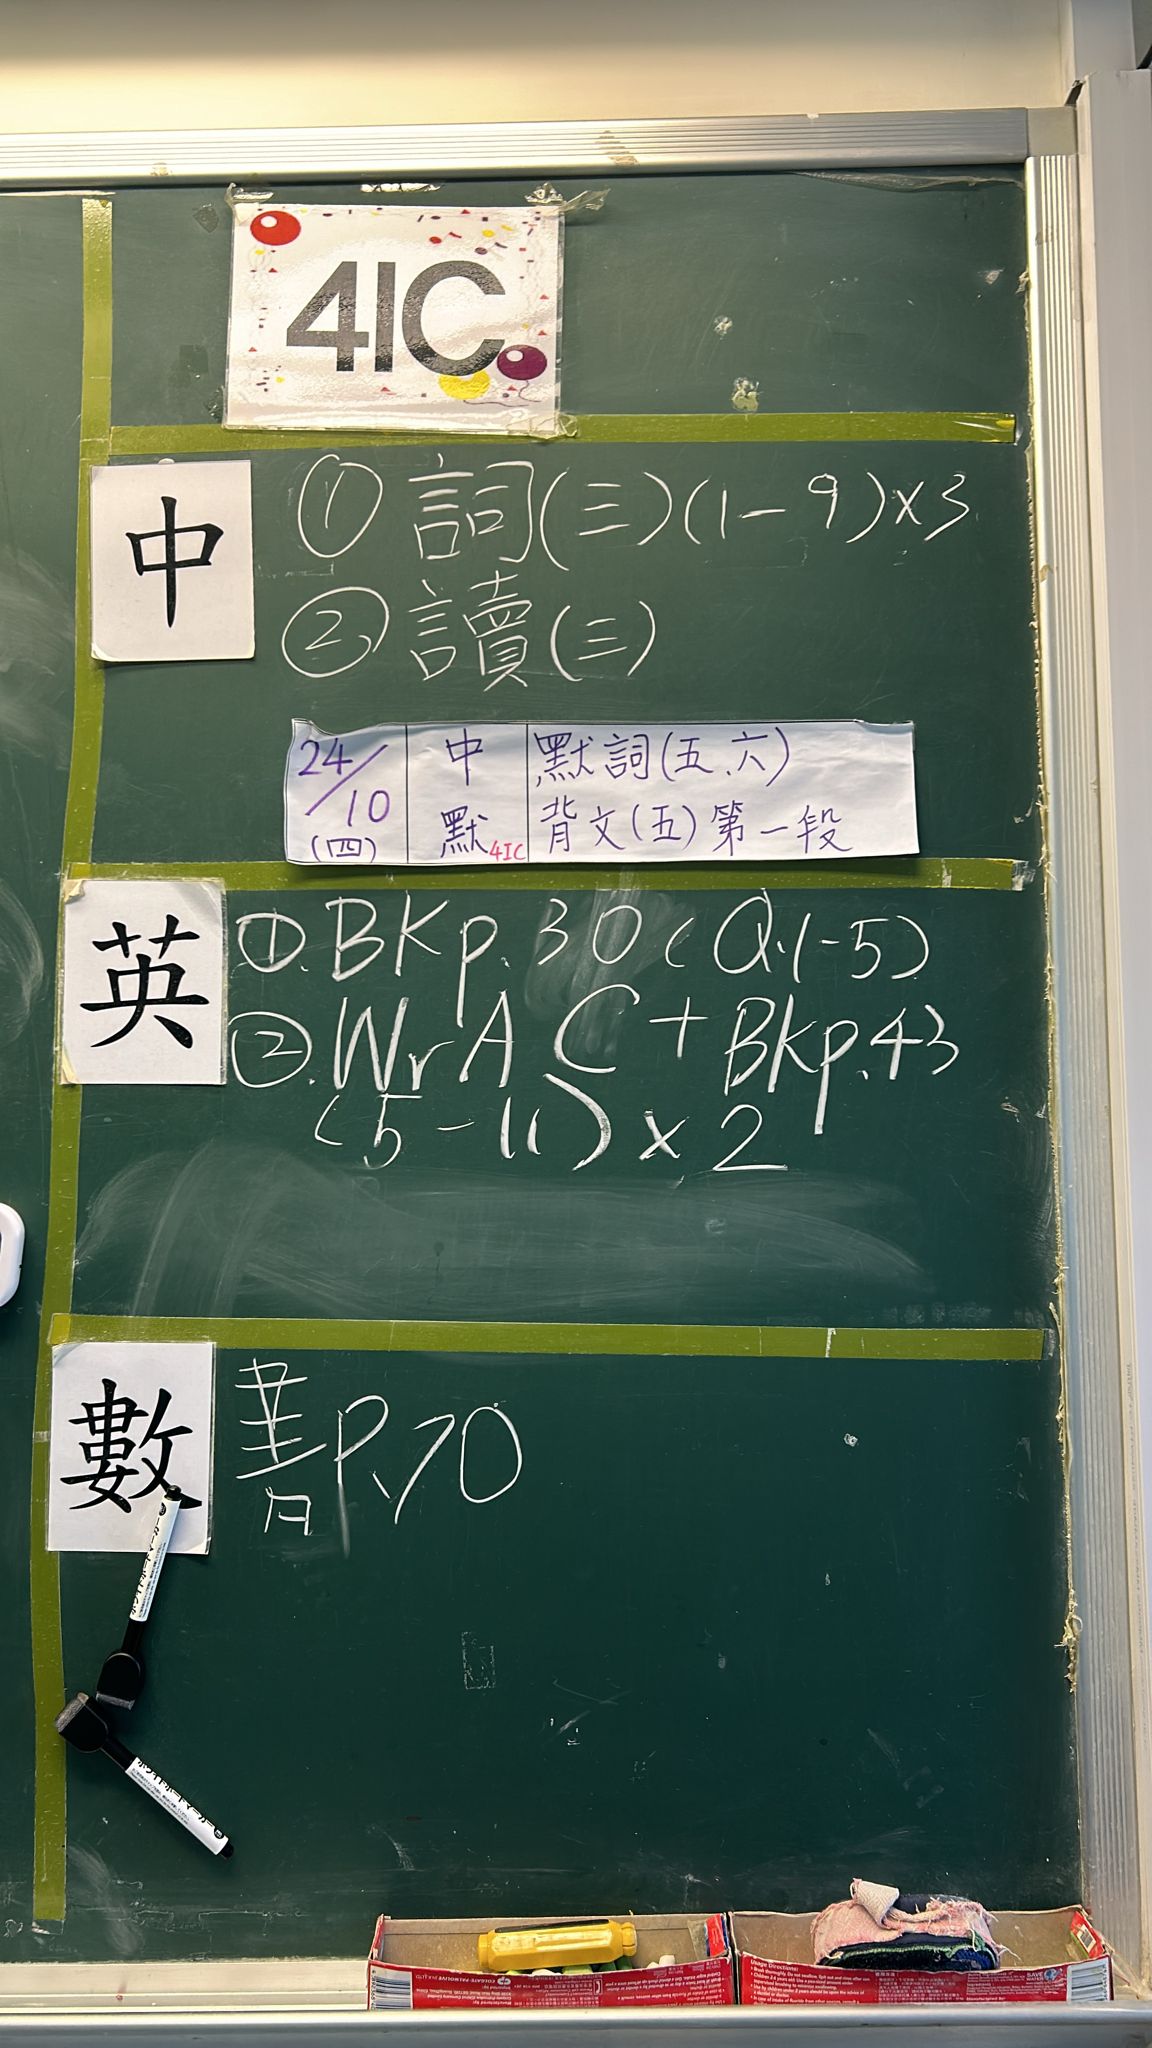 4IC
中
① 詞(三)(1-9)×3
② 讀(三)
24/10
(四)
中
默 4IC
默詞(五、六)
背文(五)第一段
英
①. BKp.30 (Q.1-5)
②. WrA C + BKp.43
(5-11) × 2
數
書P.70